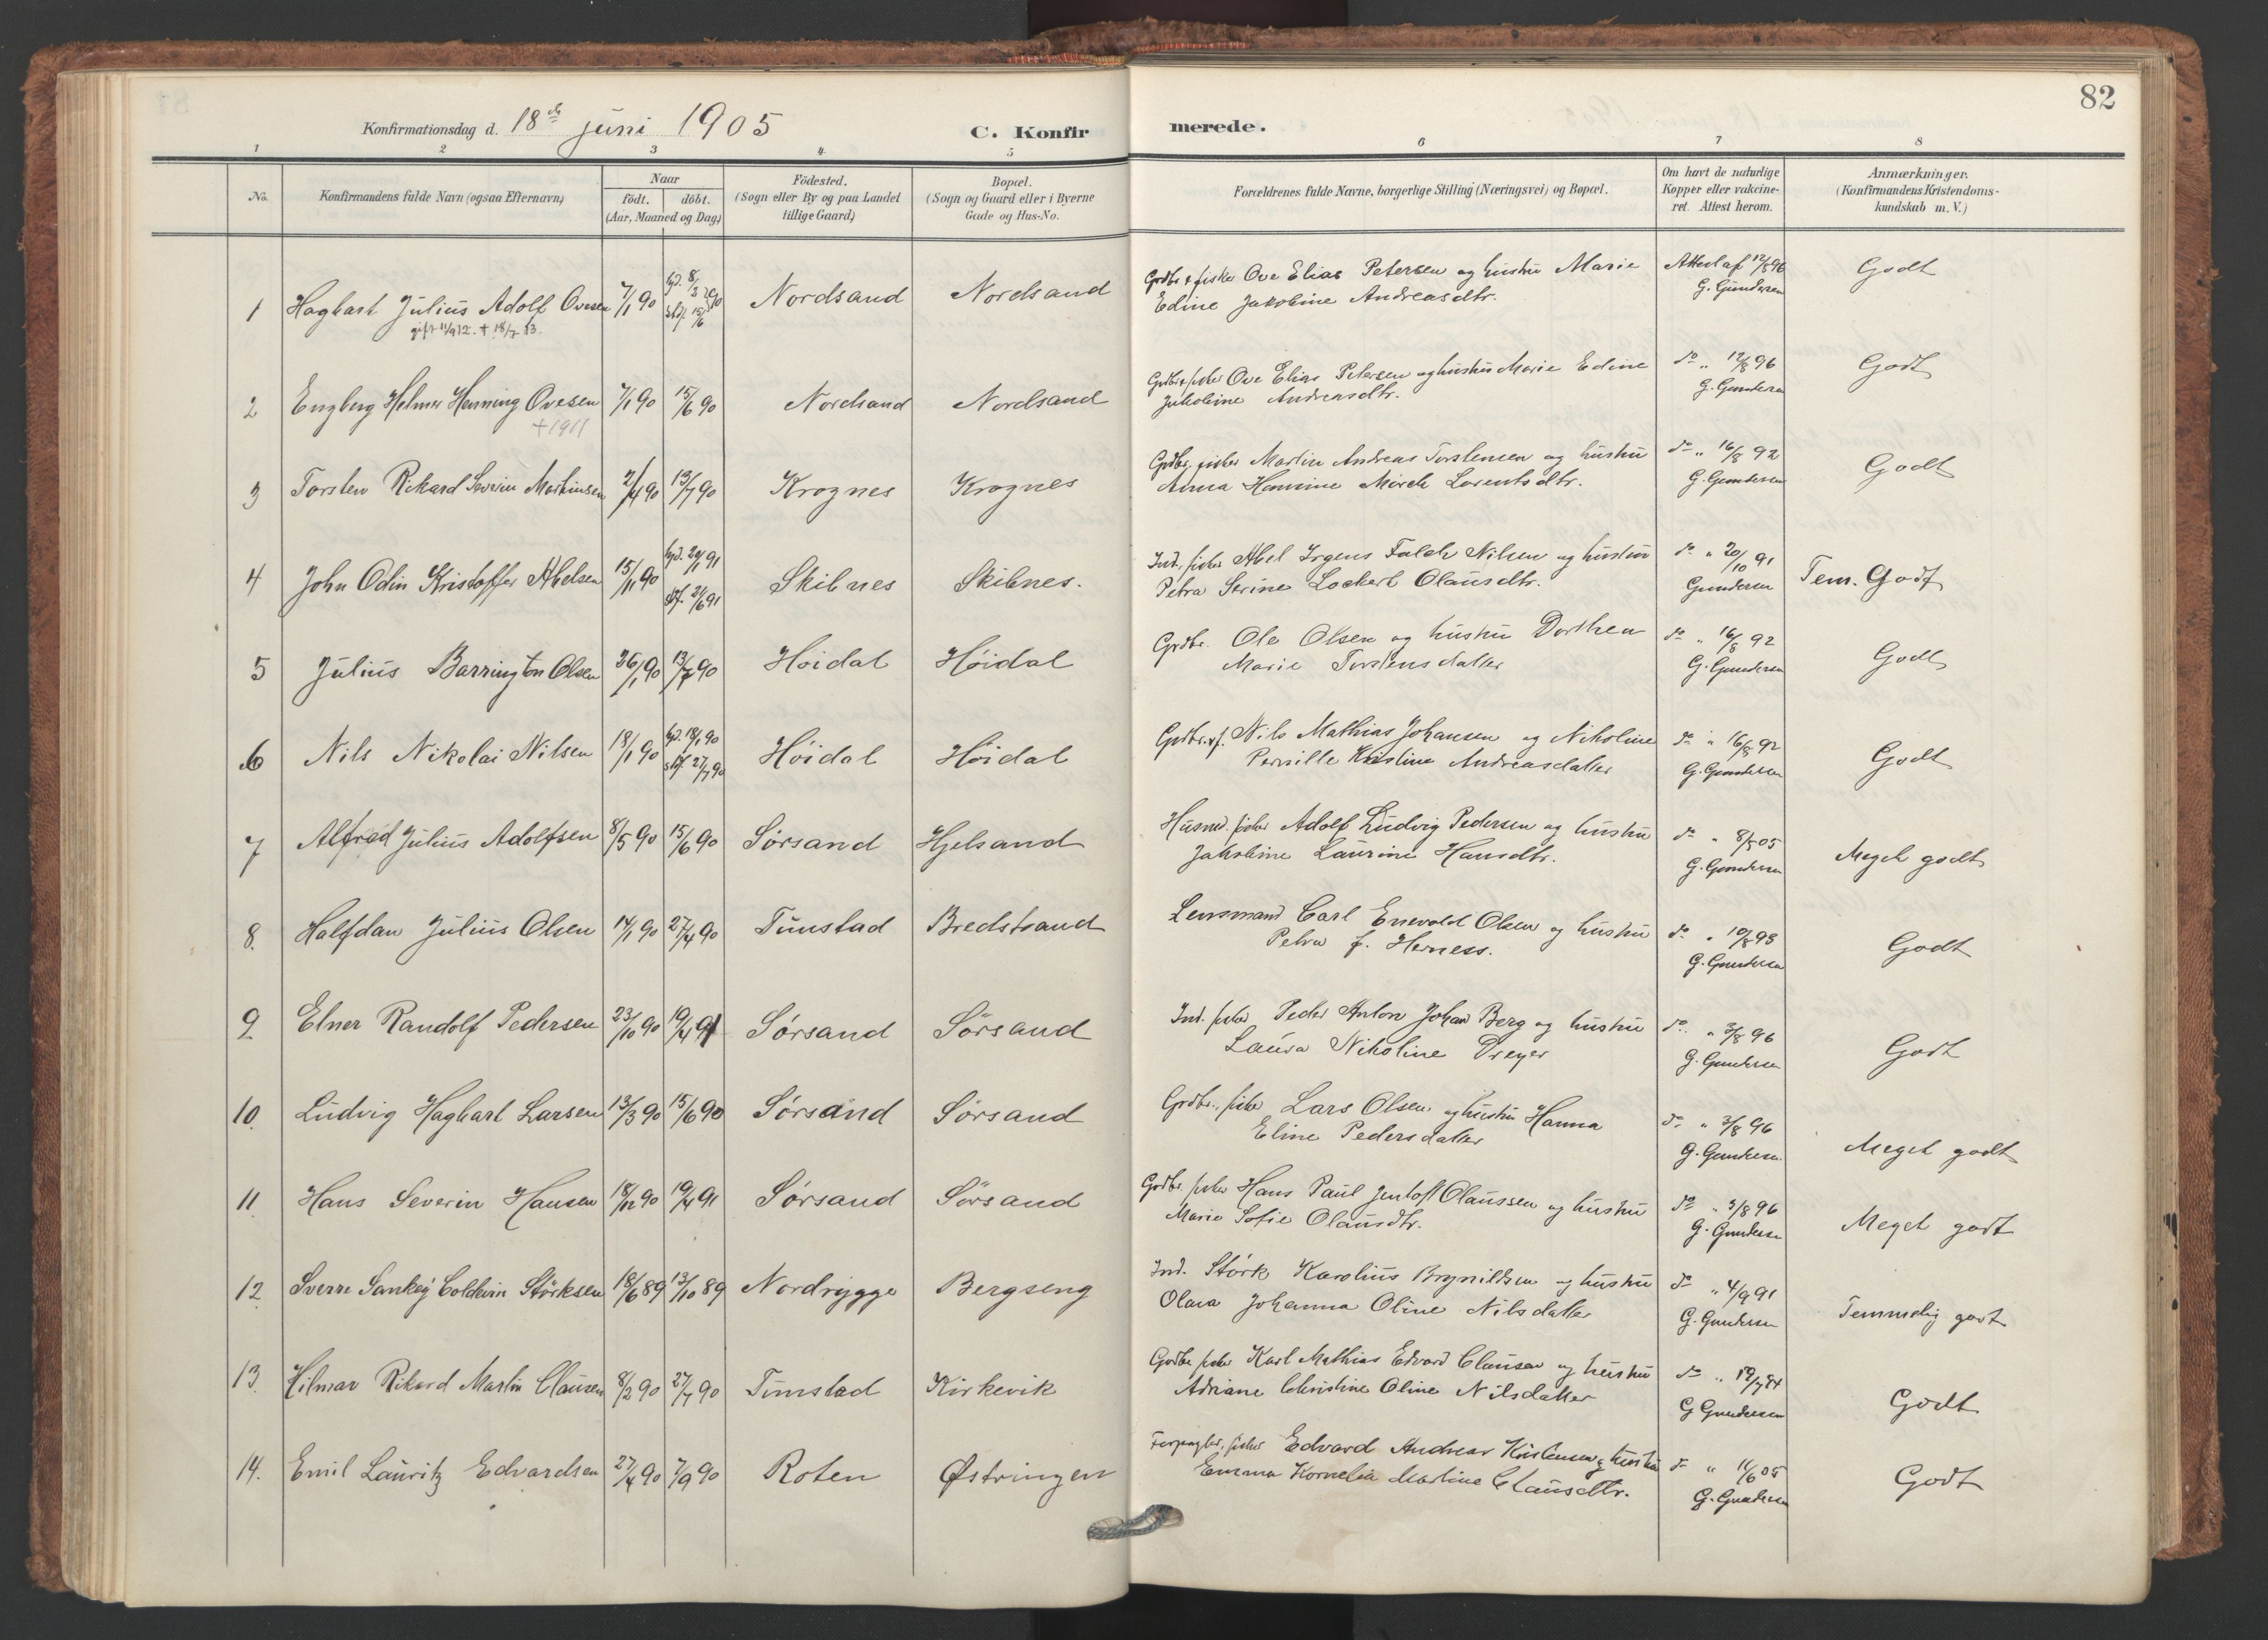 82
Konfirmationsdag d. 18de juni 1905 C. Konfirmerede.
1 2 3 4 5 6 7 8
No. Konfirmandens fulde Navn (ogsaa Efternavn) Naar født. døbt. (Aar, Maaned og Dag) Fødested. (Sogn eller By og paa Landet tillige Gaard) Bopæl. (Sogn og Gaard eller i Byerne Gade og Hus-No. Forældrenes fulde Navne, borgerlige Stilling (Næringsvei) og Bopæl. Om havt de naturlige Kopper eller vaccineret. Attest herom. Anmærkninger. (Konfirmandens Kristendomskundskab m. V.)
1 Hagbart Julius Adolf Ovesen 7/1 90 Nordsand Nordsand Grdbr & fisker Ove Elias Petersen og hustru Marie Attest af 12/8 96 Godt
gift 11/9 12. + 18/7 13. stf. 15/6 Edine Jakobine Andreasdtr. G. Gundersen
2 Engberg Helmer Henning Ovesen 7/1 90 15/6 90 Nordsand Nordsand Grdbr & fisker Ove Elias Petersen og hustru Marie Edine do " 12/8 96 Godt
+1911 Jakobine Andreasdtr. G. Gundersen
3 Torsten Rikard Severin Martinsen 2/4 90 13/7 90 Krognes Krognes Grdbr, fisker Martin Andreas Torstensen og hustru do " 16/8 92 Godt
Anna Hannine Mörch Lorentsdtr. G. Gundersen
4 John Odin Kristoffer Abelsen 15/11 90 stf. 21/6 91 Skibnes Skibnes. Ind., fisker Abel Irgens Falch Nilsen og hustru do " 20/10 91 Tem. Godt
Petra Serine Lockert Olausdtr. Gundersen
5 Julius Barrington Olsen 26/1 90 13/7 90 Høidal Høidal Grdbr. Ole Olsen og hustru Dorthea do " 16/8 92 Godt
Marie Torstensdatter G. Gundersen
6 Nils Nikolai Nilsen 18/1 90 hjd. 18/1 90 stf. 27/7 90 Høidal Høidal Grdbr. & f. Nils Mathias Johansen og Nikoline do " 16/8 92 Godt
Pernille Kristine Andreasdatter G. Gundersen
7 Alfred Julius Adolfsen 8/5 90 15/6 90 Sörsand Hjelsand Husmd. fisker Adolf Ludvig Pedersen og hustru do " 8/5 05 Meget godt
Jakobine Laurine Hansdtr. G. Gundersen
8. Halfdan Julius Olsen 14/1 90 27/4 90 Tunstad Bredstrand Lensmand Carl Enevold Olsen og hustru do " Godt
Petra f. Herness. G. Gundersen
9 Elner Randolf Pedersen 23/10 90 19/4 91 Sörsand Sörsand Ind. fisker Peder Anton Johan Berg og hustru do " 3/8 96 Godt
Laura Nikoline Dreyer G. Gundersen
10. Ludvig Hagbart Larsen 13/3 90 15/6 90 Sörsand Sörsand Grdbr., fisker Lars Olsen og hustru Hanna do " 3/8 96 Meget godt
Eline Pedersdatter G. Gundersen
11 Hans Severin Hansen 18/12 90 19/4 91 Sörsand Sörsand Grdbr. fisker Hans Paul Jentoft Claussen og hustru do " 3/8 96 Meget godt
Marie Sofie Olausdtr. G. Gundersen
12. Sverre Sankey Coldevin Störksen 18/6 89 13/10 89 Nordrygge Bergseng Ind. Störk Karolius Brynildsen og hustru do " 4/9 91 Temmelig godt
Olava Johanna Oline Nilsdatter G. Gundersen
13. Hilmar Rikard Martin Clausen 8/2 90 27/7 90 Tunstad Kirkevik Grdbr fisker Karl Mathias Edvard Clausen og hustru do " Godt
Adriane Christine Oline Nilsdatter G Gundersen
14. Emil Lauritz Edvardsen 27/4 90 7/9 90 Roten Østringen Forpagter, fisker Edvard Andreas Kristensen og hustru do " 11/6 05 Godt
Emma Kornelia Martine Clausdtr. G. Gundersen